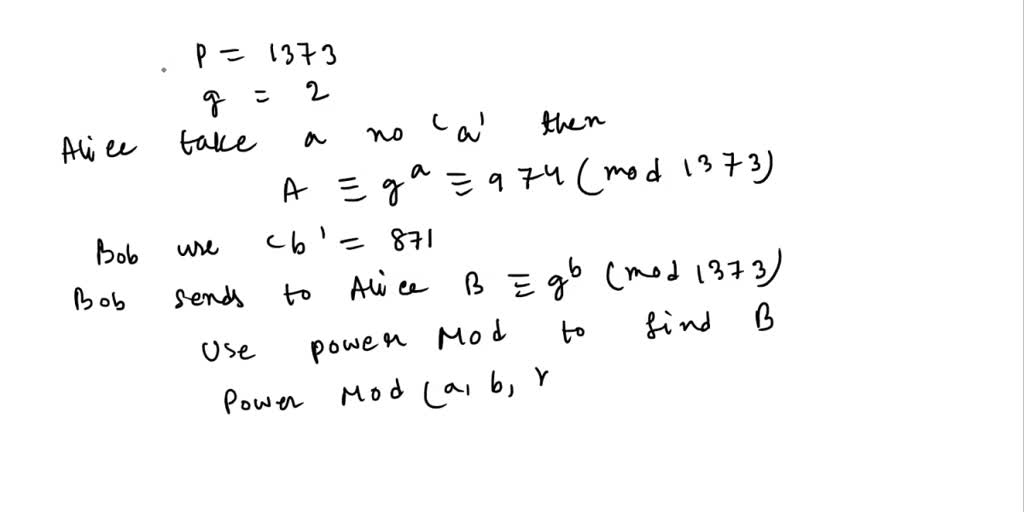 P = 1373
g = 2
Alice take a no 'a' then
A ≡ g^a ≡ 974 (mod 1373)
Bob use 'b' = 871
Bob sends to Alice B ≡ g^b (mod 1373)
Use power Mod to find B
Power Mod (a, b, r